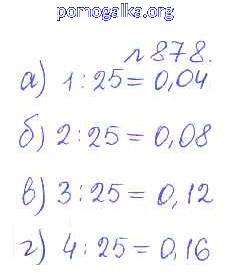 pomogalka.org
№ 878.
а) 1 : 25 = 0,04
б) 2 : 25 = 0,08
в) 3 : 25 = 0,12
г) 4 : 25 = 0,16